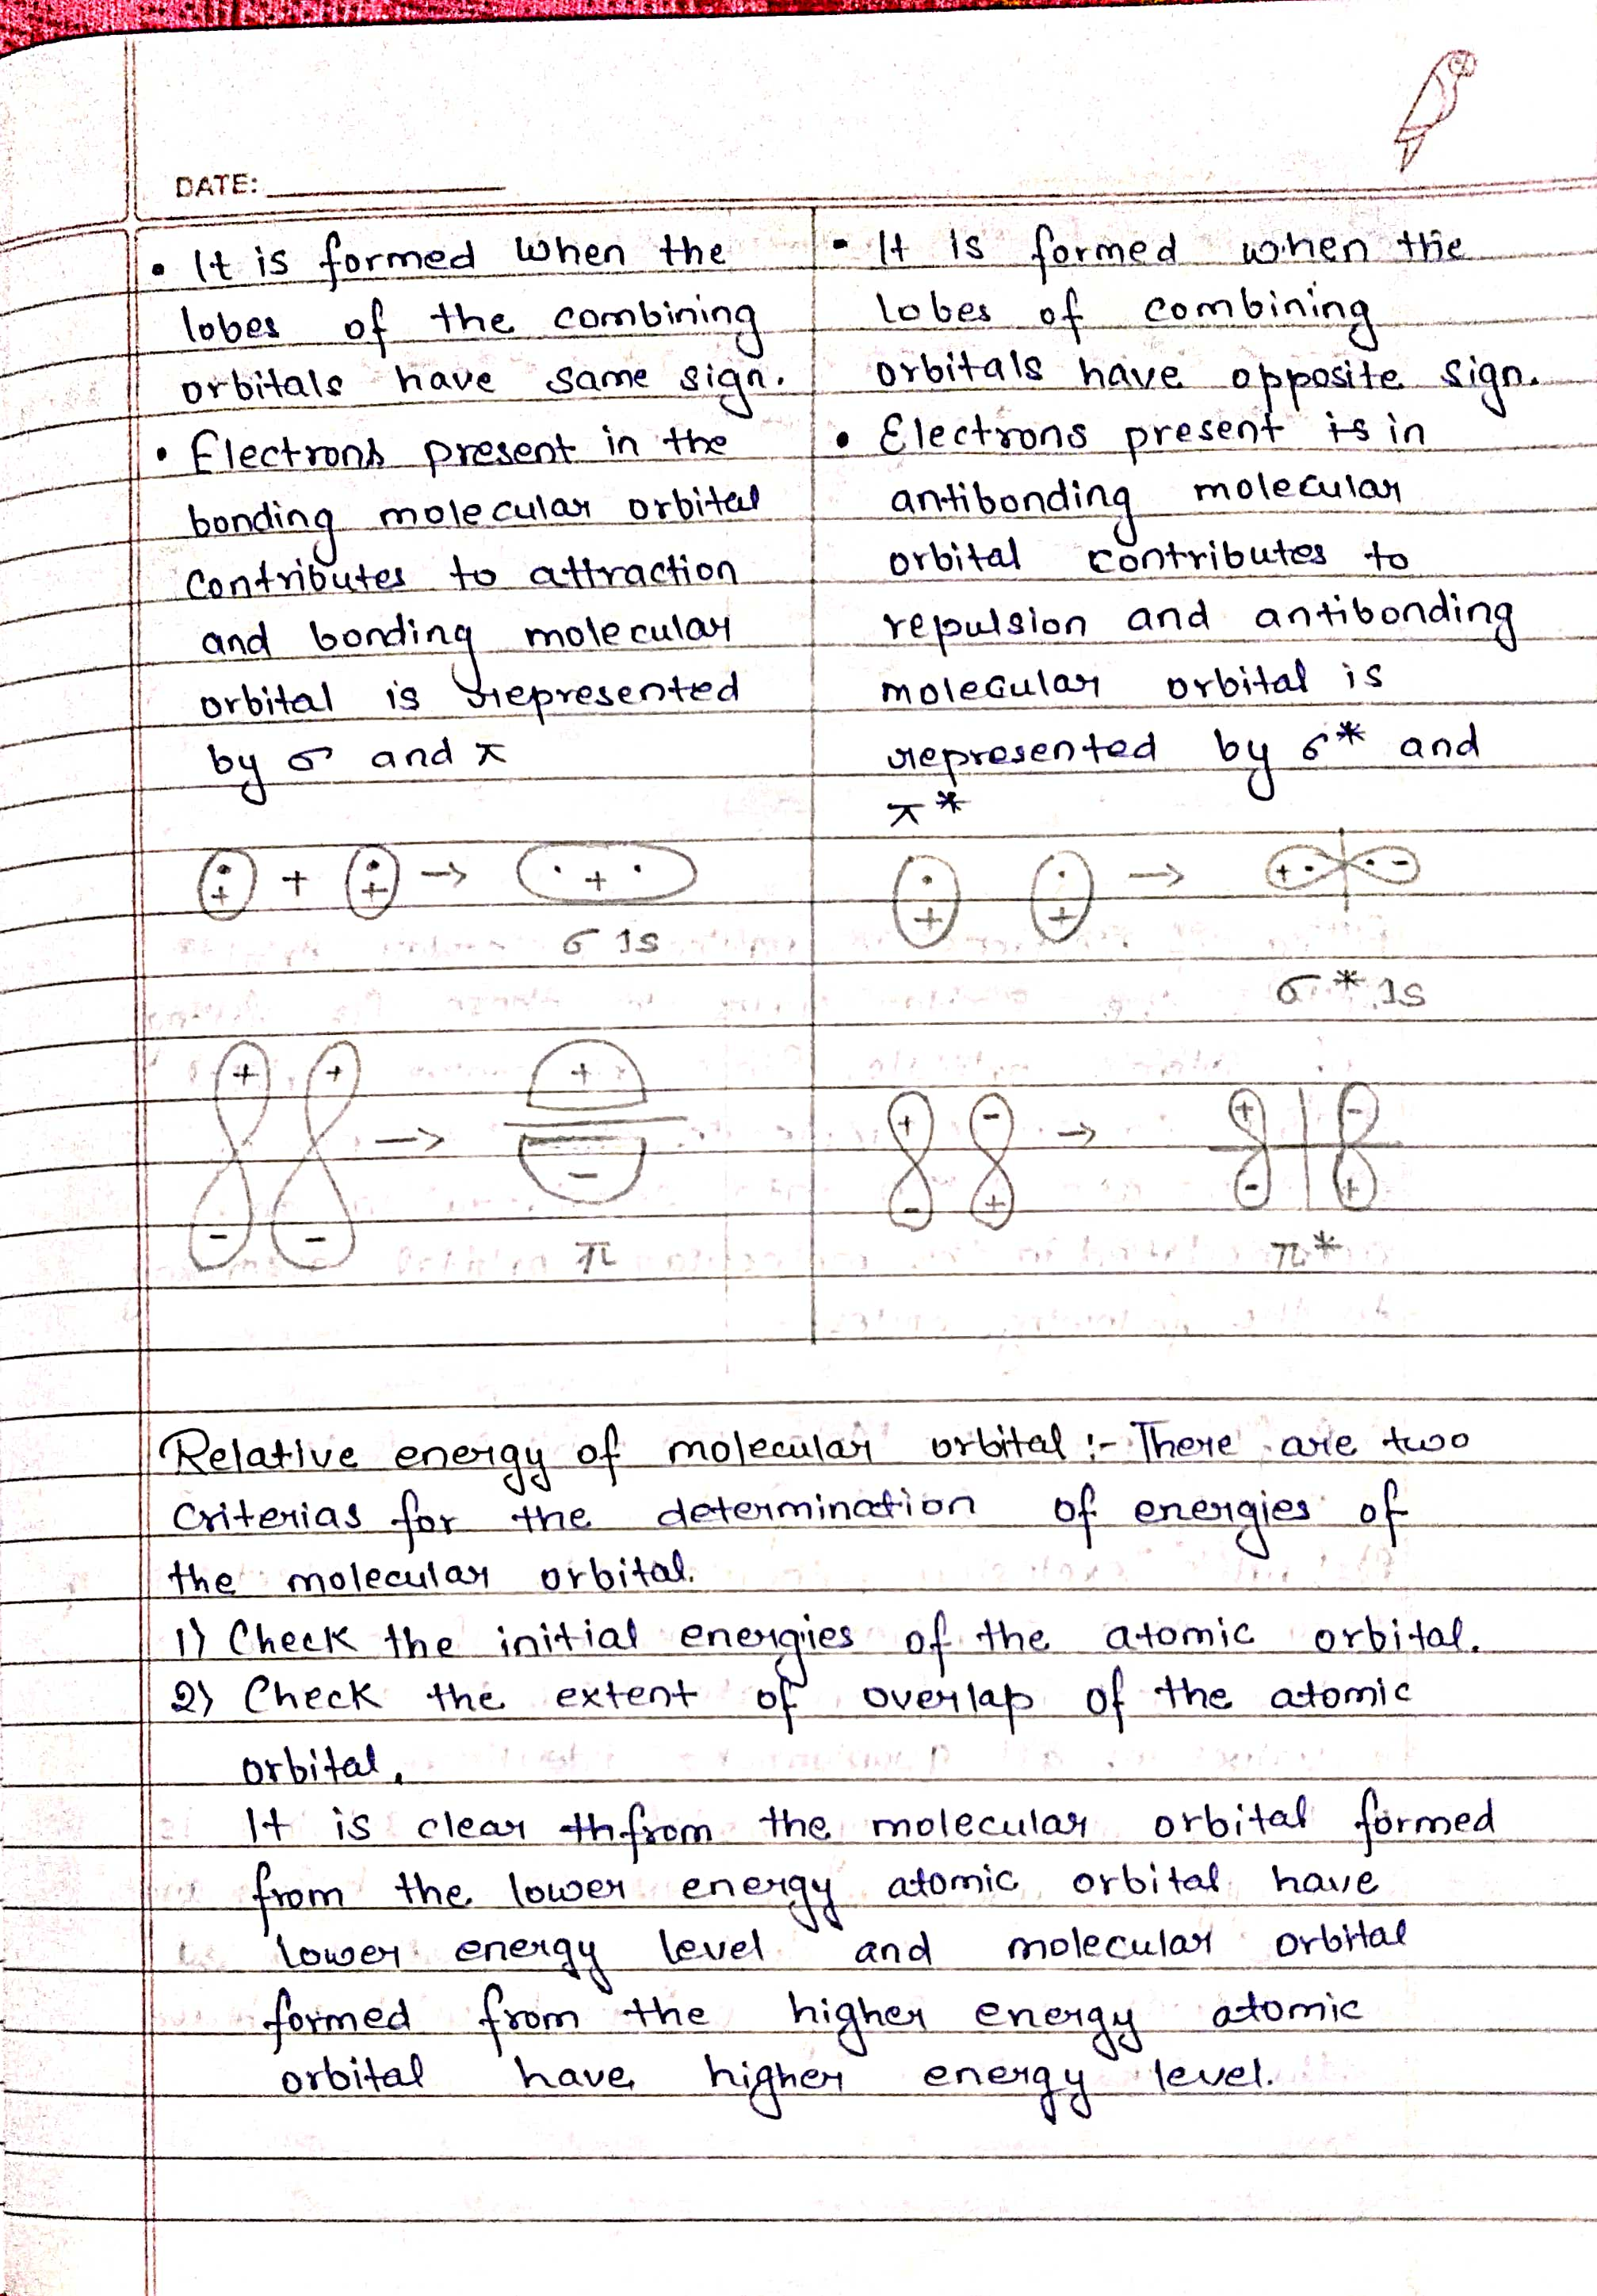 DATE:
• It is formed when the
lobes of the combining
orbitals have same sign.
• Electrons present in the
bonding molecular orbital
contributes to attraction
and bonding molecular
orbital is represented
by σ and π
+ + + → + 
σ 1s
+ + →
+
- -
-
π
• It is formed when the
lobes of combining
orbitals have opposite sign.
• Electrons present is in
antibonding molecular
orbital contributes to
repulsion and antibonding
molecular orbital is
represented by σ* and
π*
+ + → + -
σ* 1s
+ - → + -
- + - +
π*
Relative energy of molecular orbital :- There are two
criterias for the determination of energies of
the molecular orbital.
1) Check the initial energies of the atomic orbital.
2) Check the extent of overlap of the atomic
orbital.
It is clear th from the molecular orbital formed
from the lower energy atomic orbital have
lower energy level and molecular orbital
formed from the higher energy atomic
orbital have higher energy level.